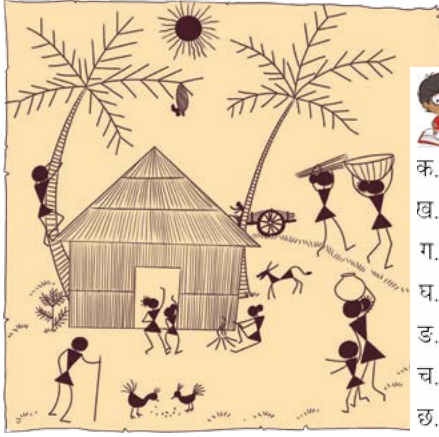 क.
ख.
ग.
घ.
ङ.
च.
छ.